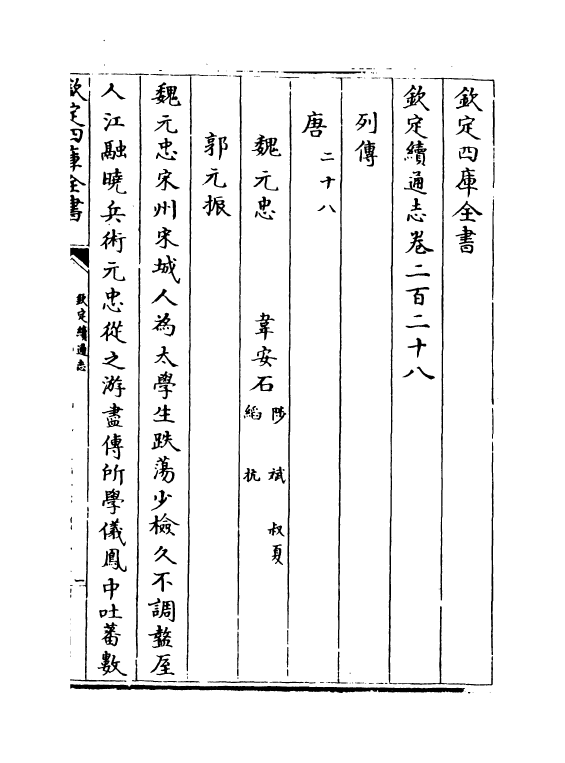 欽定四庫全書
欽定續通志卷二百二十八
列傳
唐二十八
魏元忠 韋安石陟 斌 叔夏 縚 抗
郭元振
魏元忠宋州宋城人為太學生跌蕩少檢久不調盩厔
人江融曉兵術元忠從之游盡傳所學儀鳳中吐蕃數
欽定四庫全書
欽定續通志